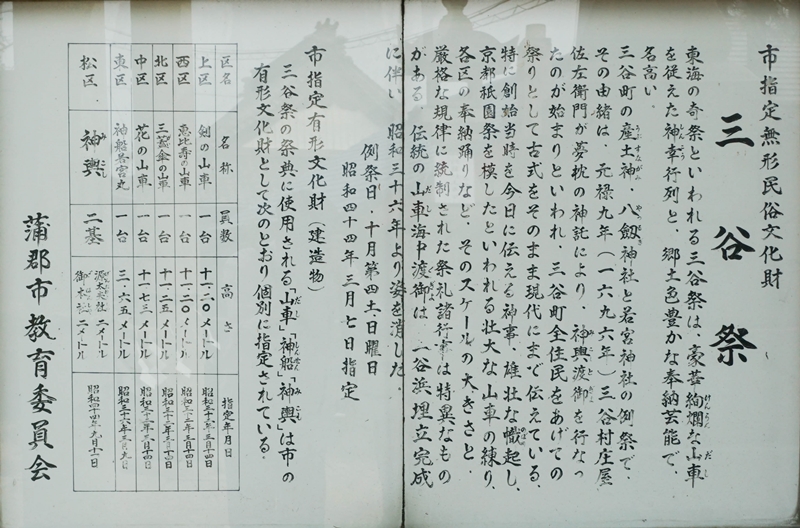 市指定無形民俗文化財
三谷祭
東海の奇祭といわれる三谷祭は、豪華絢爛な山車
を従えた神幸行列と、郷土色豊かな奉納芸能で、
名高い。
三谷町の産土神 八劔神社と若宮神社の例祭で、
その由緒は、元禄九年(一六九六年)三谷村庄屋
佐左衛門が夢枕の神託により、神輿渡御を行なっ
たのが始まりといわれ、三谷町全住民をあげての
祭りとして古式をそのまま現代にまで伝えている。
特に創始当時を今日に伝える神事、雄壮な幟起し、
京都祇園祭を模したといわれる壮大な山車の練り、
各区の奉納踊りなど、そのスケールの大きさと、
厳格な規律に統制された祭礼諸行事は特異なもの
がある。伝統の山車海中渡御は、三谷浜埋立完成
に伴い 昭和三十六年より姿を消した。
例祭日・十月第四土、日曜日
昭和四十四年三月七日指定
市指定有形文化財(建造物)
三谷祭の祭典に使用される「山車」「神船」「神輿」は市の
有形文化財として次のとおり個別に指定されている。
区名 名称 員数 高さ 指定年月日
上区 劍の山車 一台 十一・二〇メートル 昭和三十三年三月十四日
西区 恵比寿の山車 一台 十一・二〇メートル 昭和三十三年三月十四日
北区 三蓋傘の山車 一台 十一・二五メートル 昭和三十三年三月十四日
中区 花の山車 一台 十一・七三メートル 昭和三十三年三月十四日
東区 神船若宮丸 一台 三・六五メートル 昭和三十六年三月九日
松区 神輿 二基 二メートル 二メートル 昭和四十四年九月十一日
蒲郡市教育委員会